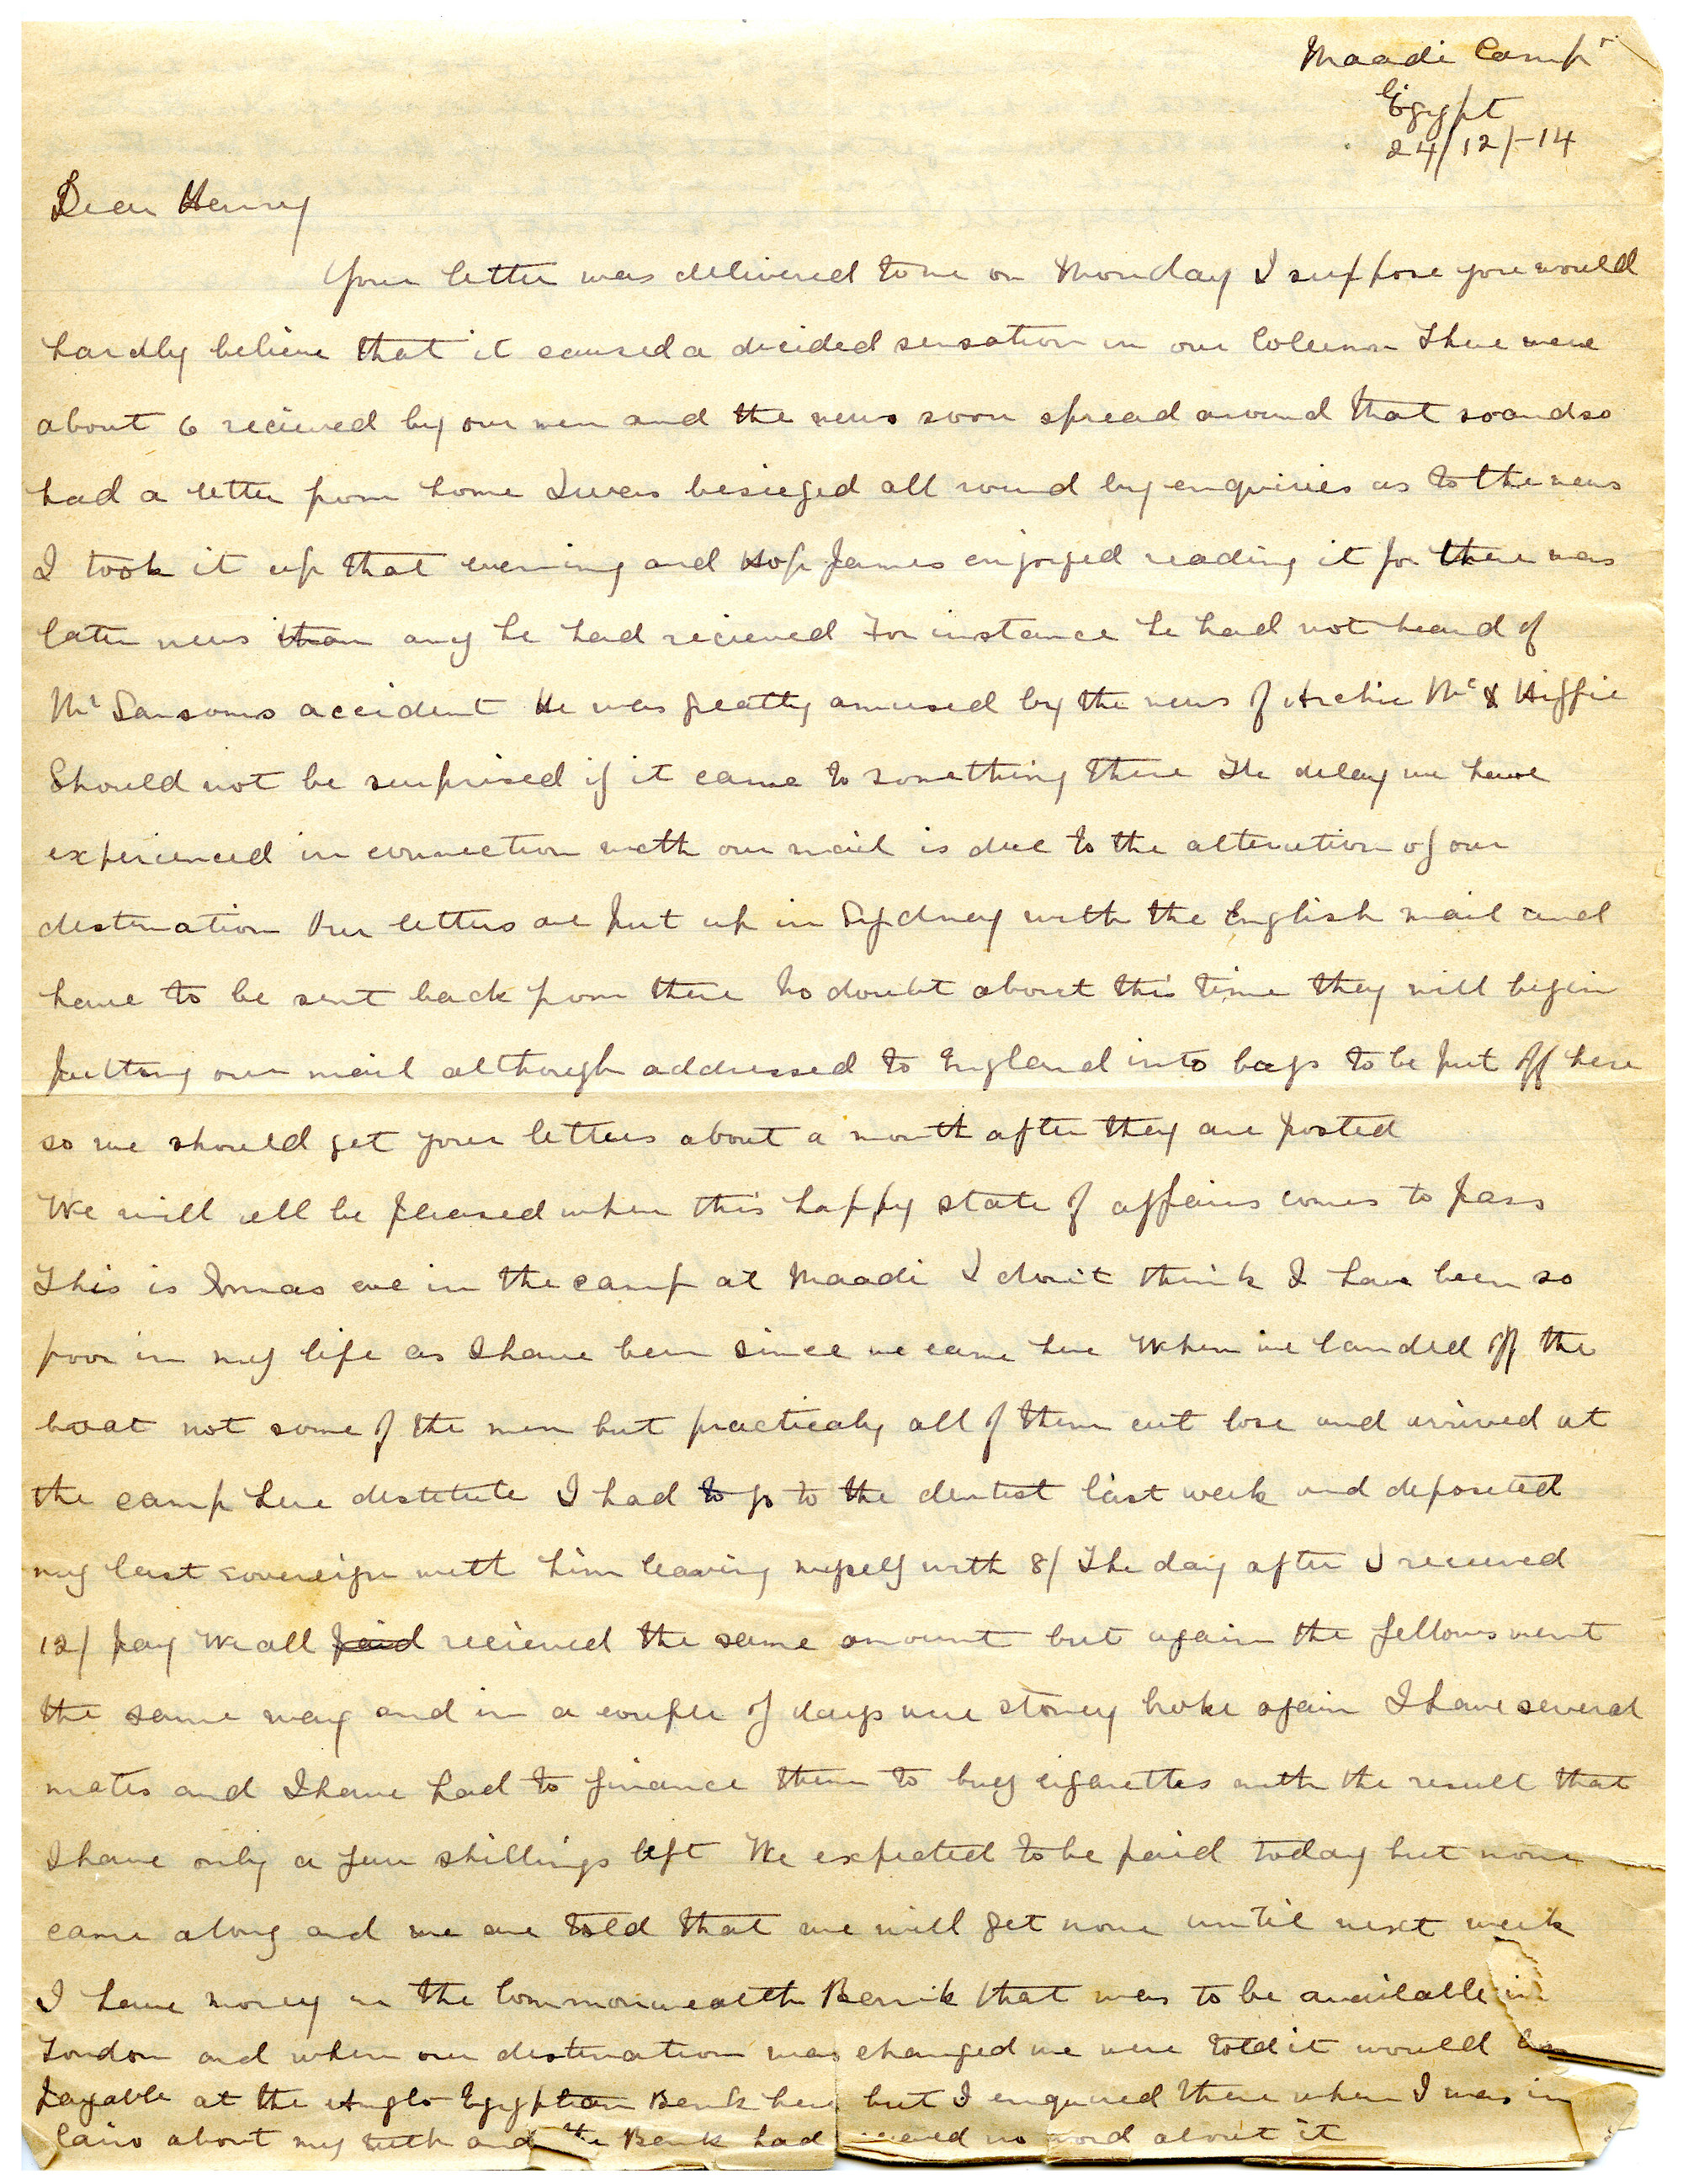 Maadi Camp
Egypt
24/12/-14
Dear Henry
Your letter was delivered to me on Monday I suppose you would
hardly believe that it caused a decided sensation in our Column There were
about 6 recieved by our men and the news soon spread around that so and so
had a letter from home I was besieged all round by enquiries as to the news
I took it up that evening and Hop James enjoyed reading it for there was
later news than any he had recieved For instance he had not heard of
Mr Sansoms accident He was greatly amused by the news of Archie Mc & Hiffie
Should not be surprised if it came to something there The delay we have
experienced in connection with our mail is due to the alteration of our
destination Our letters are put up in Sydney with the English mail and
have to be sent back from there No doubt about this time they will begin
putting our mail although addressed to England into bags to be put off here
so we should get your letters about a month after they are posted
We will all be pleased when this happy state of affairs comes to pass
This is Xmas eve in the camp at Maadi I don't think I have been so
poor in my life as I have been since we came here When we landed off the
boat not some of the men but practicaly all of them cut lose and arrived at
the camp here destitute I had to go to the dentist last week and deposited
my last sovereign with him leaving myself with 8/ The day after I received
12/ pay We all paid recieved the same amount but again the fellows went
the same way and in a couple of days were stoney broke again I have several
mates and I have had to finance them to buy cigarettes with the result that
I have only a few shillings left We expected to be paid today but none
came along and we are told that we will get none until next week
I have money in the Commonwealth Bank that was to be available in
London and when our destination was changed we were told it would be
payable at the Anglo Egyptian Bank here but I enquired there when I was in
Cairo about my teeth and the Bank had received no word about it